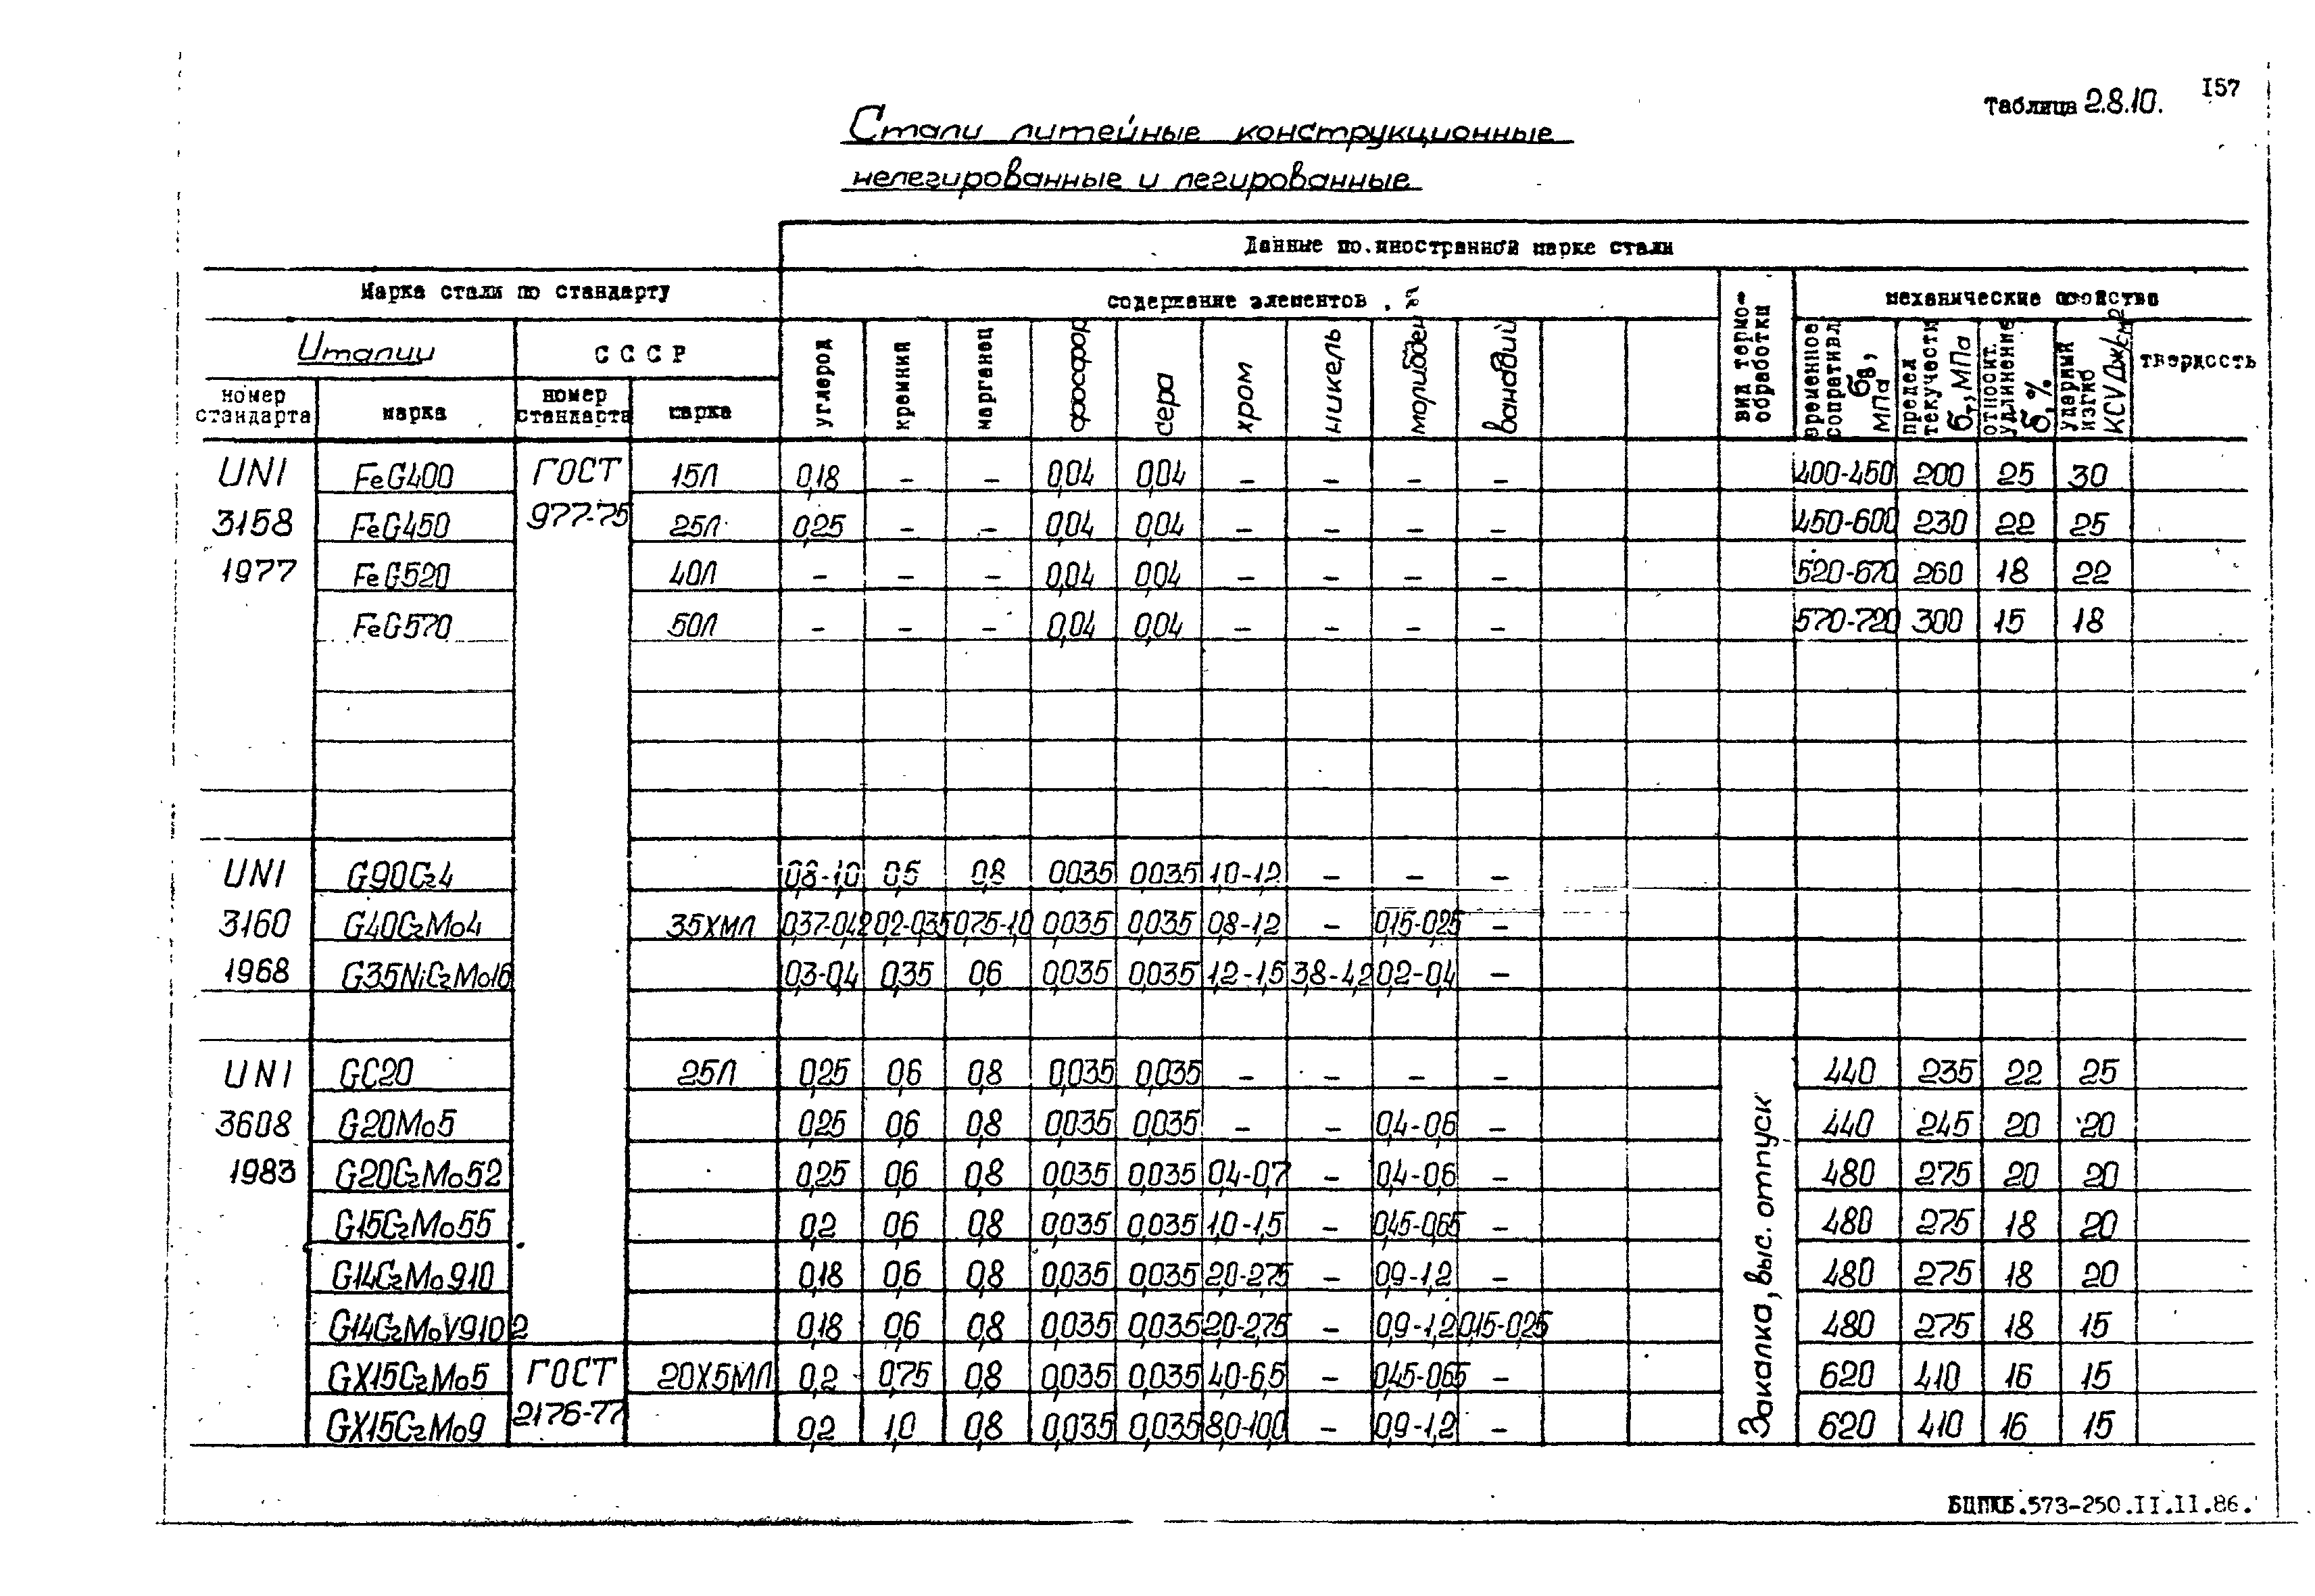 I57
Таблица 2.8.10.
Стали литейные конструкционные
нелегированные и легированные
Данные по иностранной марке стали
Марка стали по стандарту
содержание элементов, %
вид термообработки
механические свойства
Италии
СССР
номер стандарта
марка
номер стандарта
марка
углерод
кремний
марганец
фосфор
сера
хром
никель
молибден
ванадий
временное сопротивл. бв, МПа
предел текучести бт, МПа
относит. удлинение б, %
ударный изгиб KCV Дж/см2
твердость
UNI FeG400 ГОСТ 15Л 0,18 – – 0,04 0,04 – – – – 400-450 200 25 30
3158 FeG450 977-75 25Л 0,25 – – 0,04 0,04 – – – – 450-600 230 22 25
1977 FeG520 40Л – – – 0,04 0,04 – – – – 520-670 260 18 22
FeG570 50Л – – – 0,04 0,04 – – – – 570-720 300 15 18
UNI G90Cr4 0,8-1,0 0,5 0,8 0,035 0,035 1,0-1,2 – – –
3160 G40CrMo4 35ХМЛ 0,37-0,42 0,2-0,35 0,75-1,0 0,035 0,035 0,8-1,2 – 0,15-0,25 –
1968 G35NiCrMo16 0,3-0,4 0,35 0,6 0,035 0,035 1,2-1,5 3,8-4,2 0,2-0,4 –
UNI GC20 25Л 0,25 0,6 0,8 0,035 0,035 – – – – 440 235 22 25
3608 G20Mo5 0,25 0,6 0,8 0,035 0,035 – – 0,4-0,6 – 440 245 20 20
1983 G20CrMo52 0,25 0,6 0,8 0,035 0,035 0,4-0,7 – 0,4-0,6 – 480 275 20 20
G15CrMo55 0,2 0,6 0,8 0,035 0,035 1,0-1,5 – 0,45-0,65 – 480 275 18 20
G14CrMo910 0,18 0,6 0,8 0,035 0,035 2,0-2,75 – 0,9-1,2 – 480 275 18 20
G14CrMoV9102 0,18 0,6 0,8 0,035 0,035 2,0-2,75 – 0,9-1,2 0,15-0,25 480 275 18 15
GX15CrMo5 ГОСТ 20Х5МЛ 0,2 0,75 0,8 0,035 0,035 4,0-6,5 – 0,45-0,65 – 620 410 16 15
GX15CrMo9 2176-77 0,2 1,0 0,8 0,035 0,035 8,0-10,0 – 0,9-1,2 – 620 410 16 15
Закалка, выс. отпуск
БЦПКБ.573-250.II.II.86.